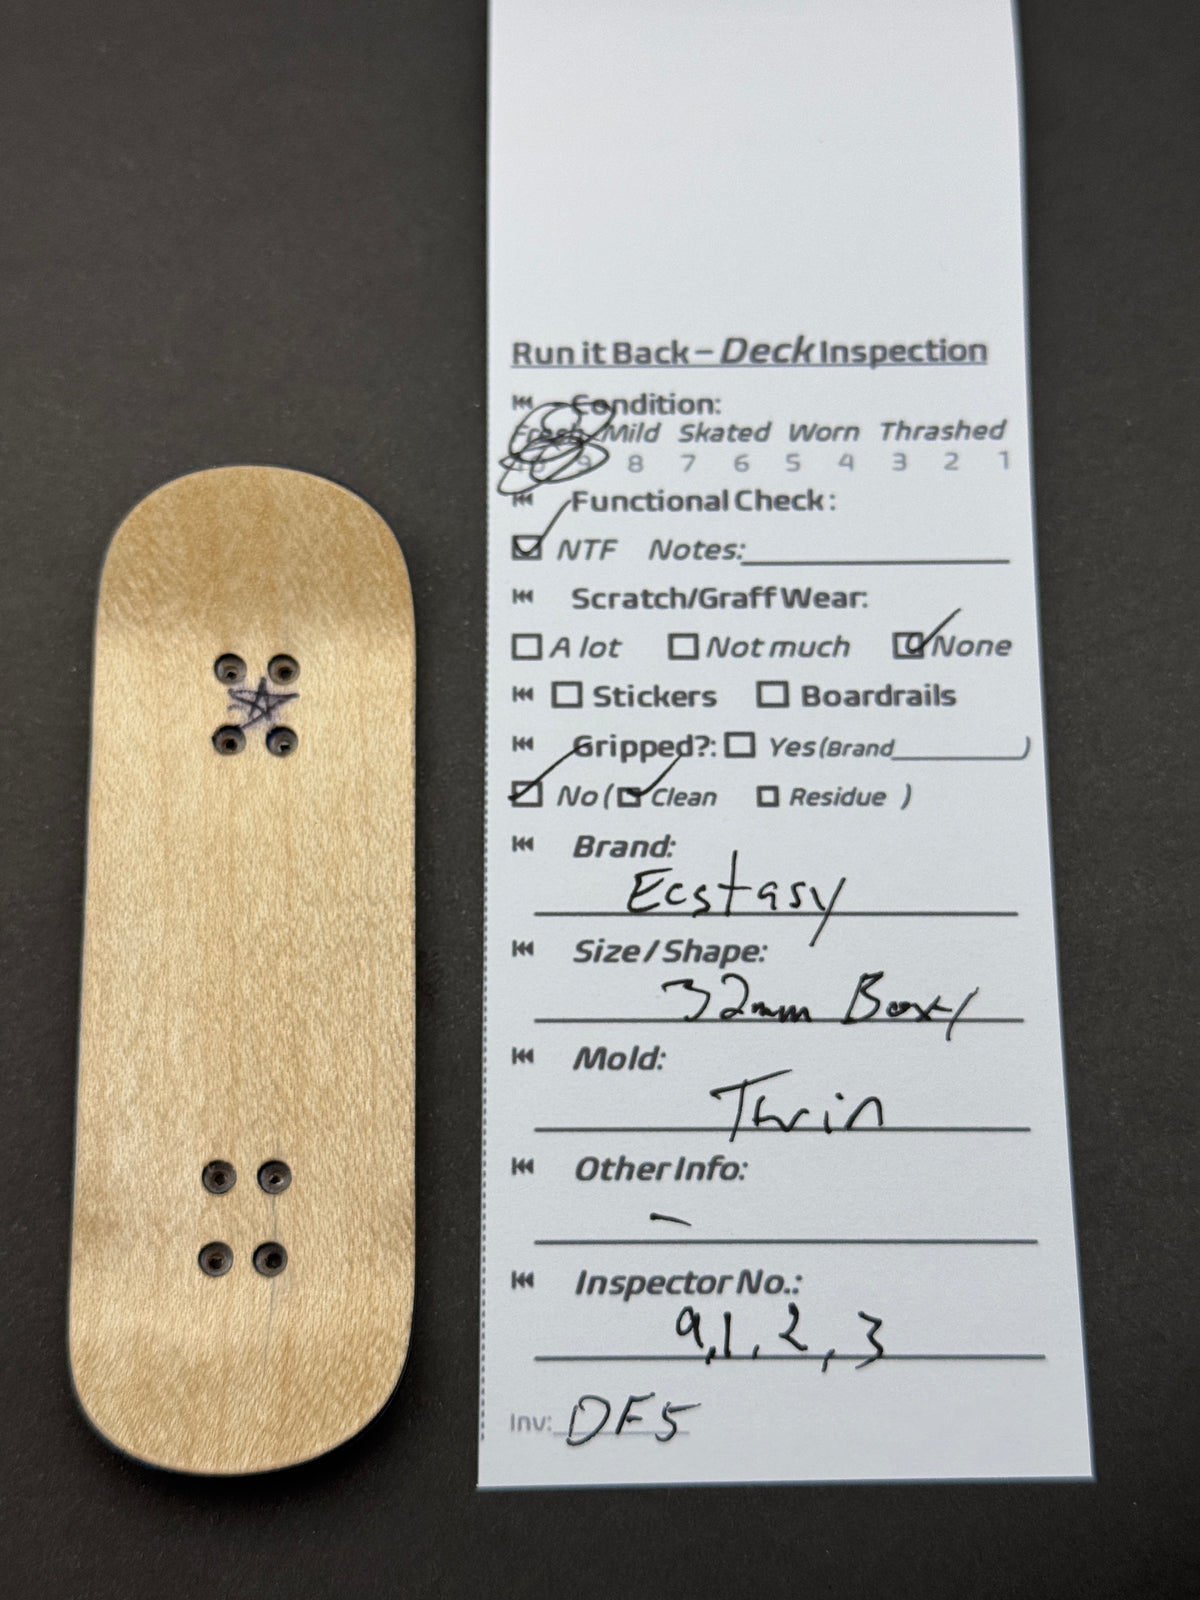 Run it Back – Deck Inspection
Condition:
Fresh Mild Skated Worn Thrashed
10 9 8 7 6 5 4 3 2 1
Functional Check:
NTF Notes:
Scratch/Graff Wear:
A lot Not much None
Stickers Boardrails
Gripped?: Yes (Brand )
No ( Clean Residue )
Brand:
Ecstasy
Size / Shape:
32mm Boxy
Mold:
Twin
Other Info:
–
Inspector No.:
9,1,2,3
Inv: DF5